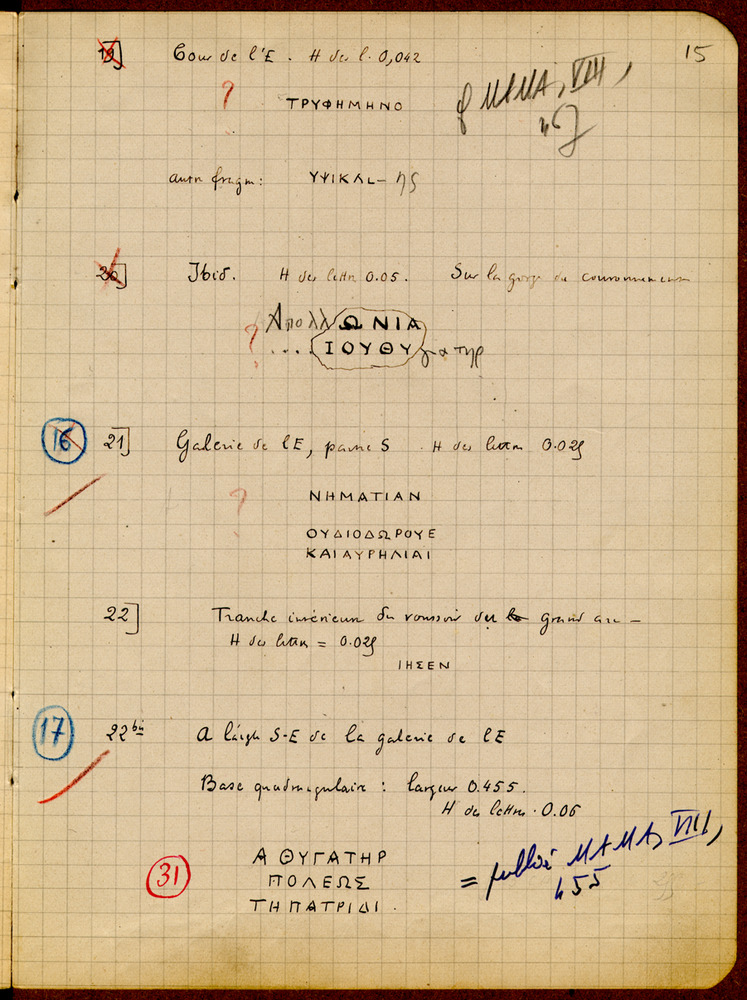 15
19] Cour de l'E. H des l. 0,042
?
ΤΡΥΦΗΜΗΝΟ
cf MAMA, VIII,
autre fragm: ΥΨΙΚΛL–
20] Ibid. H des lettr 0.05. Sur la gorge du couronnement
? ΑπολλΩΝΙΑ
....ΙΟΥΘΥγατηρ
16 21] Galerie de l'E, partie S. H des lettres 0.025
?
ΝΗΜΑΤΙΑΝ
ΟΥΔΙΟΔΩΡΟΥΕ
ΚΑΙΑΥΡΗΛΙΑΙ
22] Tranche inférieure du voussoir du grand arc –
H des lettres = 0.025
ΙΗΣΕΝ
17 22 bis A l'angle S-E de la galerie de l'E
Base quadrangulaire : largeur 0.455.
H des lettres. 0.06
31 Α ΘΥΓΑΤΗΡ
ΠΟΛΕΩΣ
ΤΗΠΑΤΡΙΔΙ.
= publié MAMA, VIII,
455